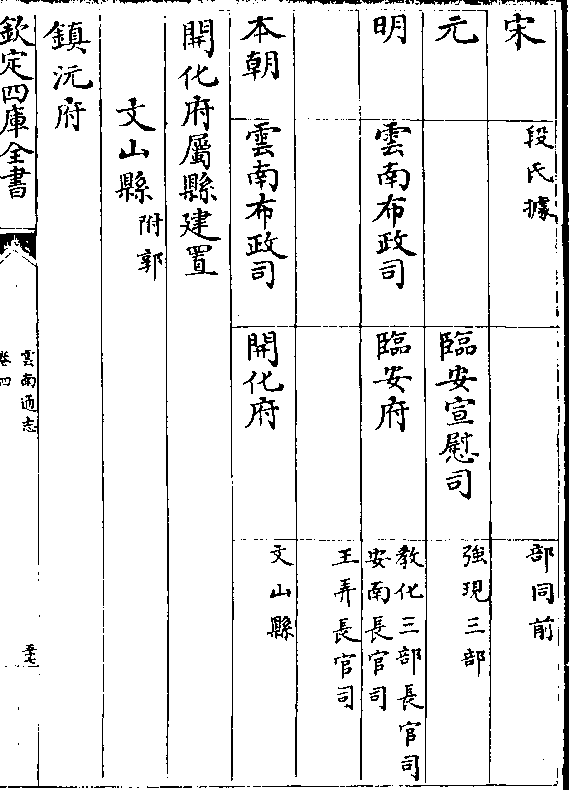 宋 段氏據 部同前
元 臨安宣慰司 強現三部
明 雲南布政司 臨安府 教化三部長官司
安南長官司
王弄長官司
本朝 雲南布政司 開化府 文山縣
開化府屬縣建置
文山縣附郭
鎮沅府
欽定四庫全書
雲南通志
卷四